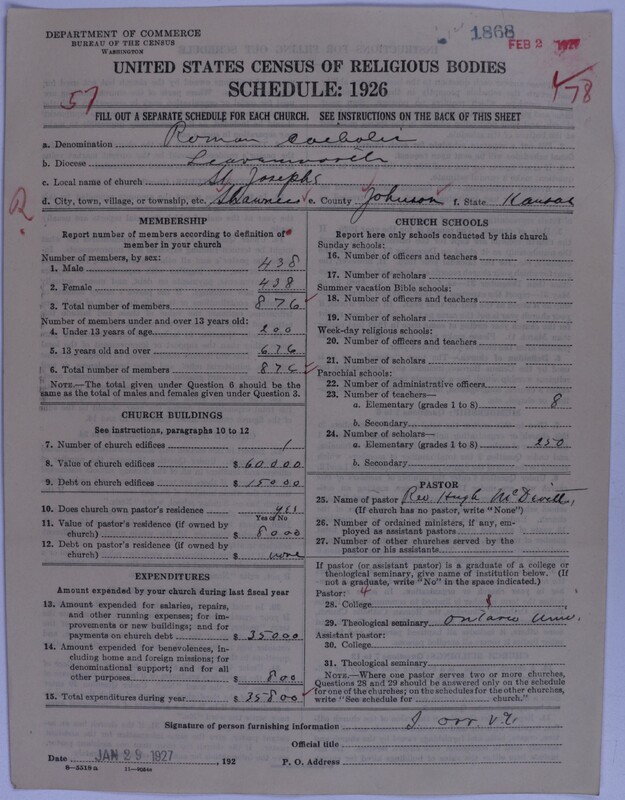 DEPARTMENT OF COMMERCE
BUREAU OF THE CENSUS
WASHINGTON
1868
FEB 2 1927
UNITED STATES CENSUS OF RELIGIOUS BODIES
SCHEDULE: 1926
57
178
FILL OUT A SEPARATE SCHEDULE FOR EACH CHURCH. SEE INSTRUCTIONS ON THE BACK OF THIS SHEET
a. Denomination Roman Catholic
b. Diocese Leavenworth
c. Local name of church St Josephs
d. City, town, village, or township, etc. Shawnee e. County Johnson f. State Kansas
R
MEMBERSHIP
Report number of members according to definition of
member in your church
Number of members, by sex:
1. Male 438
2. Female 438
3. Total number of members 876
Number of members under and over 13 years old:
4. Under 13 years of age 200
5. 13 years old and over 676
6. Total number of members 876
NOTE.—The total given under Question 6 should be the
same as the total of males and females given under Question 3.
CHURCH BUILDINGS
See instructions, paragraphs 10 to 12
7. Number of church edifices 1
8. Value of church edifices $ 60000
9. Debt on church edifices $ 15000
10. Does church own pastor's residence yes
Yes or No
11. Value of pastor's residence (if owned by
church) $ 8000
12. Debt on pastor's residence (if owned by
church) $ none
EXPENDITURES
Amount expended by your church during last fiscal year
13. Amount expended for salaries, repairs,
and other running expenses; for im-
provements or new buildings; and for
payments on church debt $ 35000
14. Amount expended for benevolences, in-
cluding home and foreign missions; for
denominational support; and for all
other purposes $ 800
15. Total expenditures during year $ 35800
CHURCH SCHOOLS
Report here only schools conducted by this church
Sunday schools:
16. Number of officers and teachers
17. Number of scholars
Summer vacation Bible schools:
18. Number of officers and teachers
19. Number of scholars
Week-day religious schools:
20. Number of officers and teachers
21. Number of scholars
Parochial schools:
22. Number of administrative officers
23. Number of teachers—
a. Elementary (grades 1 to 8) 8
b. Secondary
24. Number of scholars—
a. Elementary (grades 1 to 8) 250
b. Secondary
PASTOR
25. Name of pastor Rev Hugh McDevitt,
(If church has no pastor, write "None")
26. Number of ordained ministers, if any, em-
ployed as assistant pastors
27. Number of other churches served by the
pastor or his assistants
If pastor (or assistant pastor) is a graduate of a college or
theological seminary, give name of institution below. (If
not a graduate, write "No" in the space indicated.)
Pastor: 4
28. College
29. Theological seminary Ontario Univ.
Assistant pastor:
30. College
31. Theological seminary
NOTE.—Where one pastor serves two or more churches,
Questions 28 and 29 should be answered only on the schedule
for one of the churches; on the schedules for the other churches,
write "See schedule for church."
Signature of person furnishing information
Official title
Date JAN 29 1927, 192 P. O. Address
8—5518a